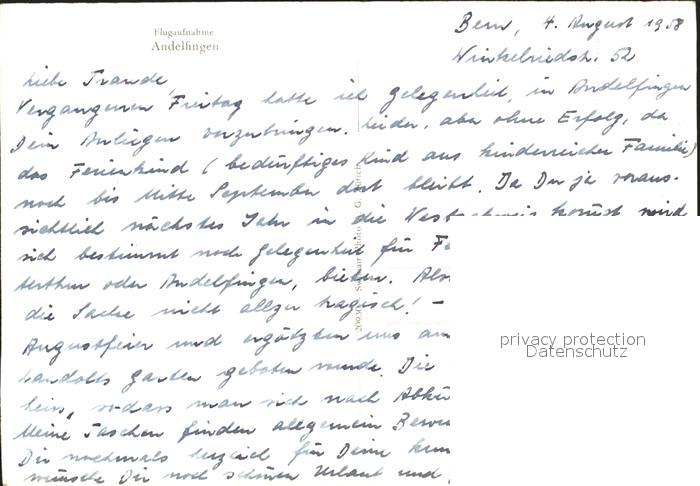 Flugaufnahme
Andelfingen
Bern, 4. August 1958
Winkelriedstr. 52
Liebe Traude,
Vergangenen Freitag hatte ich Gelegenheit, in Andelfingen
Dein Anliegen vorzubringen. Leider, aber ohne Erfolg, da
das Ferienkind (bedürftiges Kind aus kinderreicher Familie)
noch bis Mitte September dort bleibt. Da Du ja voraus-
sichtlich nächstes Jahr in die kommst wird
sich bestimmt noch Gelegenheit für
oder Andelfingen, bieten. Also
die Sache nicht allzu tragisch! —
Augustfeier und ergötzten uns am
Landolts Garten geboten wurde. Die
heiss, sodass man sich nach
Meine Taschen finden allgemein
Dir nochmals herzlich für Deine
wünsche Dir noch schönen Urlaub und
privacy protection
Datenschutz